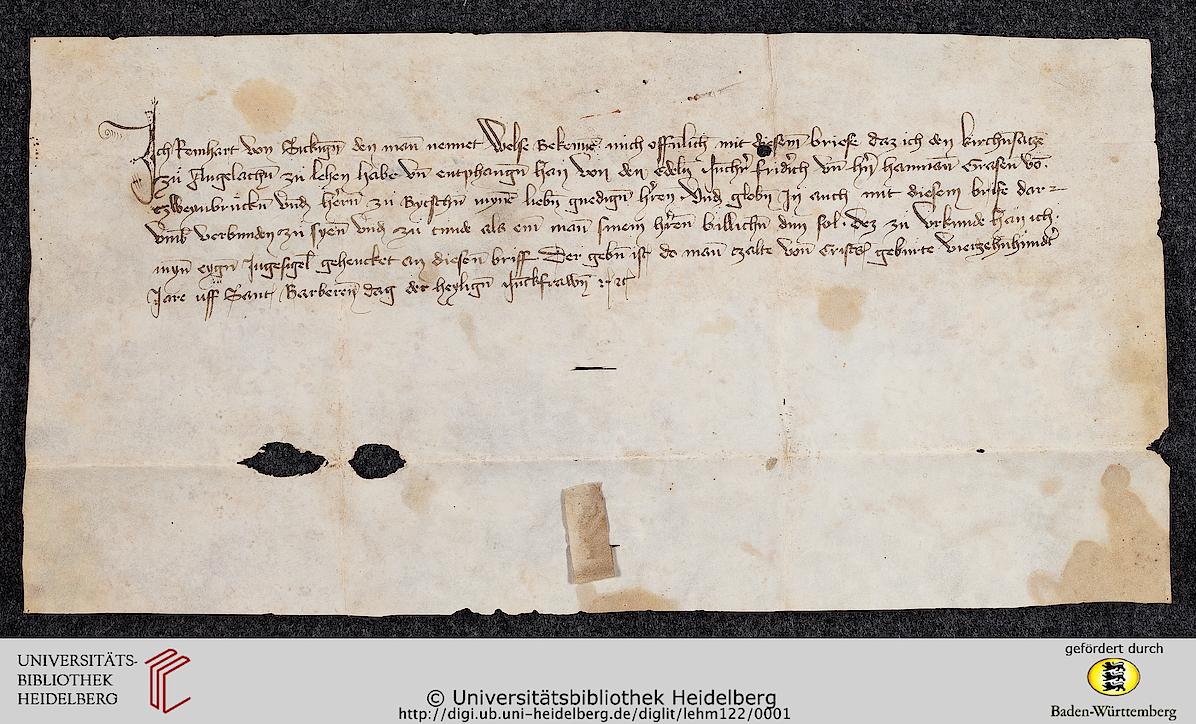 Ich Reinhart von Sickingn̄ den man nennet Welse Bekenne mich offinlich mit diesem briefe daz ich den kirchensatze
zu Angelachn zu lehen habe vn̄ entphangn̄ han von den Edeln Junchr̄ fridrich vn̄ hn̄ hanman Grafen vō
czweynbruckn̄ vnd hern̄ zu Bytschn̄ myne liebn̄ gnedign̄ hr̄ren vnd globn̄ In auch mit diesem briefe dar=
vmb verbunden zu syen̄ vnd zu tunde als ein man̄ sinem hr̄ren billichn̄ dun sol. dez zu vrkunde han ich
myn eygn̄ Ingesigel gehencket an diesen briff Der gebn̄ ist do man̄ czalte von crists geburte vierzehnhundt
Jare uff Sant Barberen dag der heylign̄ Junckfrawn̄
UNIVERSITÄTS-
BIBLIOTHEK
HEIDELBERG
© Universitätsbibliothek Heidelberg
http://digi.ub.uni-heidelberg.de/diglit/lehm122/0001
gefördert durch
Baden-Württemberg